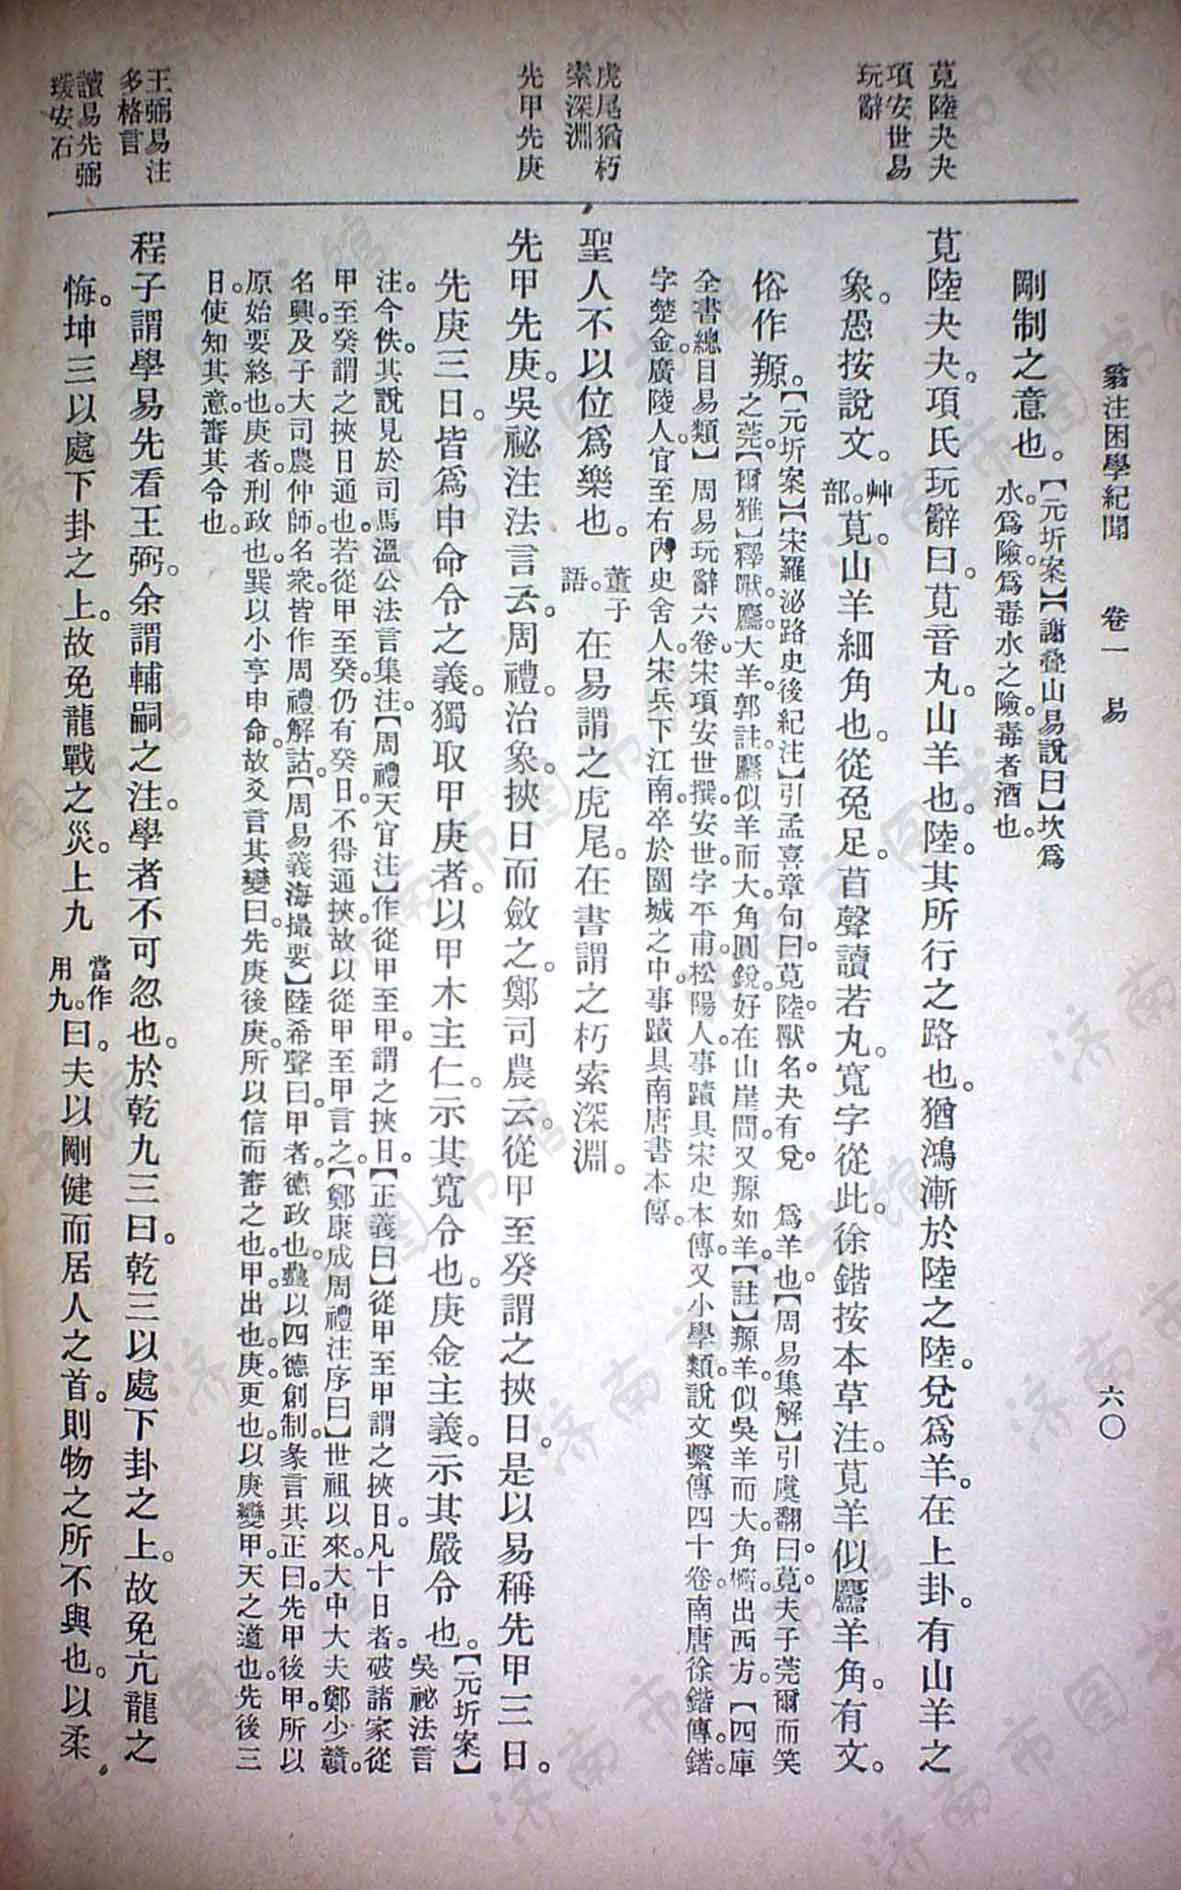 翁注困學紀聞　卷一　易　六〇
莧陸夬夬
項安世易
玩辭
虎尾猶朽
索深淵
先甲先庚
王弼易注
多格言
讀易先弼
瑗安石
剛制之意也。【元圻案】【謝疊山易說曰】坎爲
水。爲險。爲毒水之險毒者酒也。
莧陸夬夬。項氏玩辭曰。莧音丸。山羊也。陸其所行之路也。猶鴻漸於陸之陸。兌爲羊。在上卦。有山羊之
象。愚按說文。艸部。莧。山羊細角也。從兔足。苜聲讀若丸。寬字從此。徐鍇按本草注。莧羊似麢羊。角。有文。
俗作羱。【元圻案】【宋羅泌路史後紀注】引孟喜章句曰。莧陸。獸名。夬有兌　爲羊也。【周易集解】引虞翻曰。莧夫子莞爾而笑
之莞。【爾雅】釋獸。麢。大羊。郭註。麢似羊而大。角圓銳。好在山崖間。又羱如羊。【註】羱羊。似吳羊而大。角橢。出西方。【四庫
全書總目易類】周易玩辭六卷。宋項安世撰。安世字平甫。松陽人。事蹟具宋史本傳。又小學類。說文繫傳四十卷。南唐徐鍇傳。鍇。
字楚金。廣陵人。官至右內史舍人。宋兵下江南。卒於圍城之中。事蹟具南唐書本傳。
聖人不以位爲樂也。董子語。在易謂之虎尾。在書謂之朽索深淵。
先甲先庚。吳祕注法言云。周禮。治象。挾日而斂之。鄭司農云。從甲至癸謂之挾日。是以易稱先甲三日。
先庚三日。皆爲申命令之義。獨取甲庚者。以甲木主仁。示其寬令也。庚金主義。示其嚴令也。【元圻案】吳祕法言
注。今佚。其說見於司馬溫公法言集注。【周禮天官注】作從甲至甲。謂之挾日。【正義曰】從甲至甲謂之挾日。凡十日者。破諸家從
甲至癸謂之挾日通也。若從甲至癸。仍有癸日。不得通挾。故以從甲至甲言之。【鄭康成周禮注序曰】世祖以來。大中大夫鄭少贛。
名興。及子大司農仲師。名衆。皆作周禮解詁。【周易義海撮要】陸希聲曰。甲者。德政也。蠱以四德創制。彖言其正曰。先甲後甲。所以
原始要終也。庚者。刑政也。巽以小亨申命。故爻言其變曰。先庚後庚。所以信而審之也。甲。出也。庚。更也。以庚變甲。天之道也。先後三
日。使知其意。審其令也。
程子謂學易先看王弼。余謂輔嗣之注。學者不可忽也。於乾九三曰。乾三以處下卦之上。故免亢龍之
悔。坤三以處下卦之上。故免龍戰之災。上九當作用九。曰。夫以剛健而居人之首。則物之所不與也。以柔